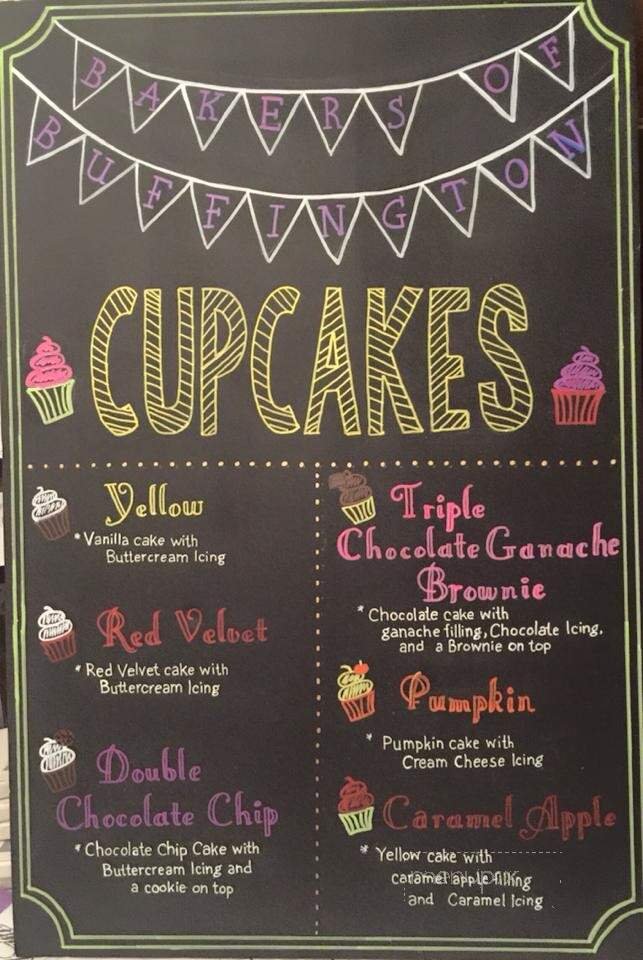 BAKERS OF
BUFFINGTON
CUPCAKES
Yellow
*Vanilla cake with
Buttercream Icing
Red Velvet
*Red Velvet cake with
Buttercream Icing
Double
Chocolate Chip
*Chocolate Chip Cake with
Buttercream Icing and
a cookie on top
Triple
Chocolate Ganache
Brownie
*Chocolate cake with
ganache filling, Chocolate Icing,
and a Brownie on top
Pumpkin
*Pumpkin cake with
Cream Cheese Icing
Caramel Apple
*Yellow cake with
caramel apple filling
and Caramel Icing